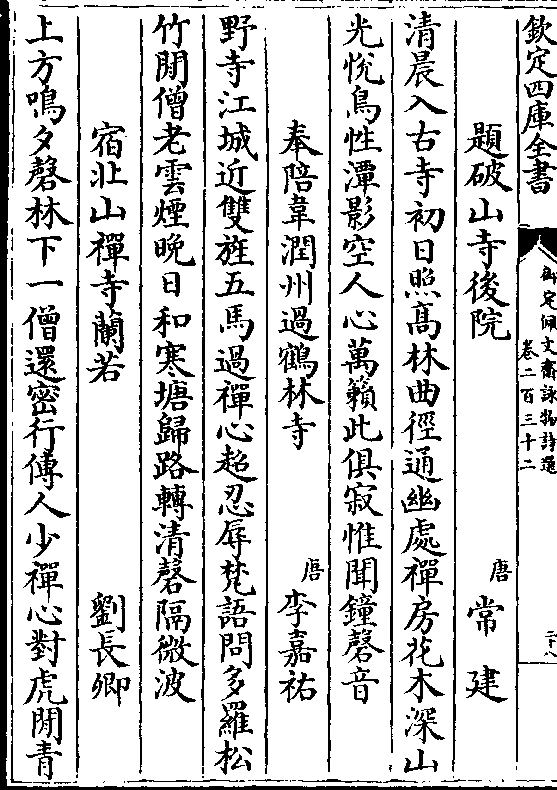 欽定四庫全書
御定佩文齋詠物詩選
卷二百三十二
題破山寺後院
唐 常建
清晨入古寺初日照髙林曲徑通幽處禪房花木深山
光悅鳥性潭影空人心萬籟此俱寂惟聞鐘磬音
奉陪韋潤州過鶴林寺
唐 李嘉祐
野寺江城近雙旌五馬過禪心超忍辱梵語問多羅松
竹閒僧老雲煙晚日和寒塘歸路轉清磬隔微波
宿北山禪寺蘭若
劉長卿
上方鳴夕磬林下一僧還密行傳人少禪心對虎閒青